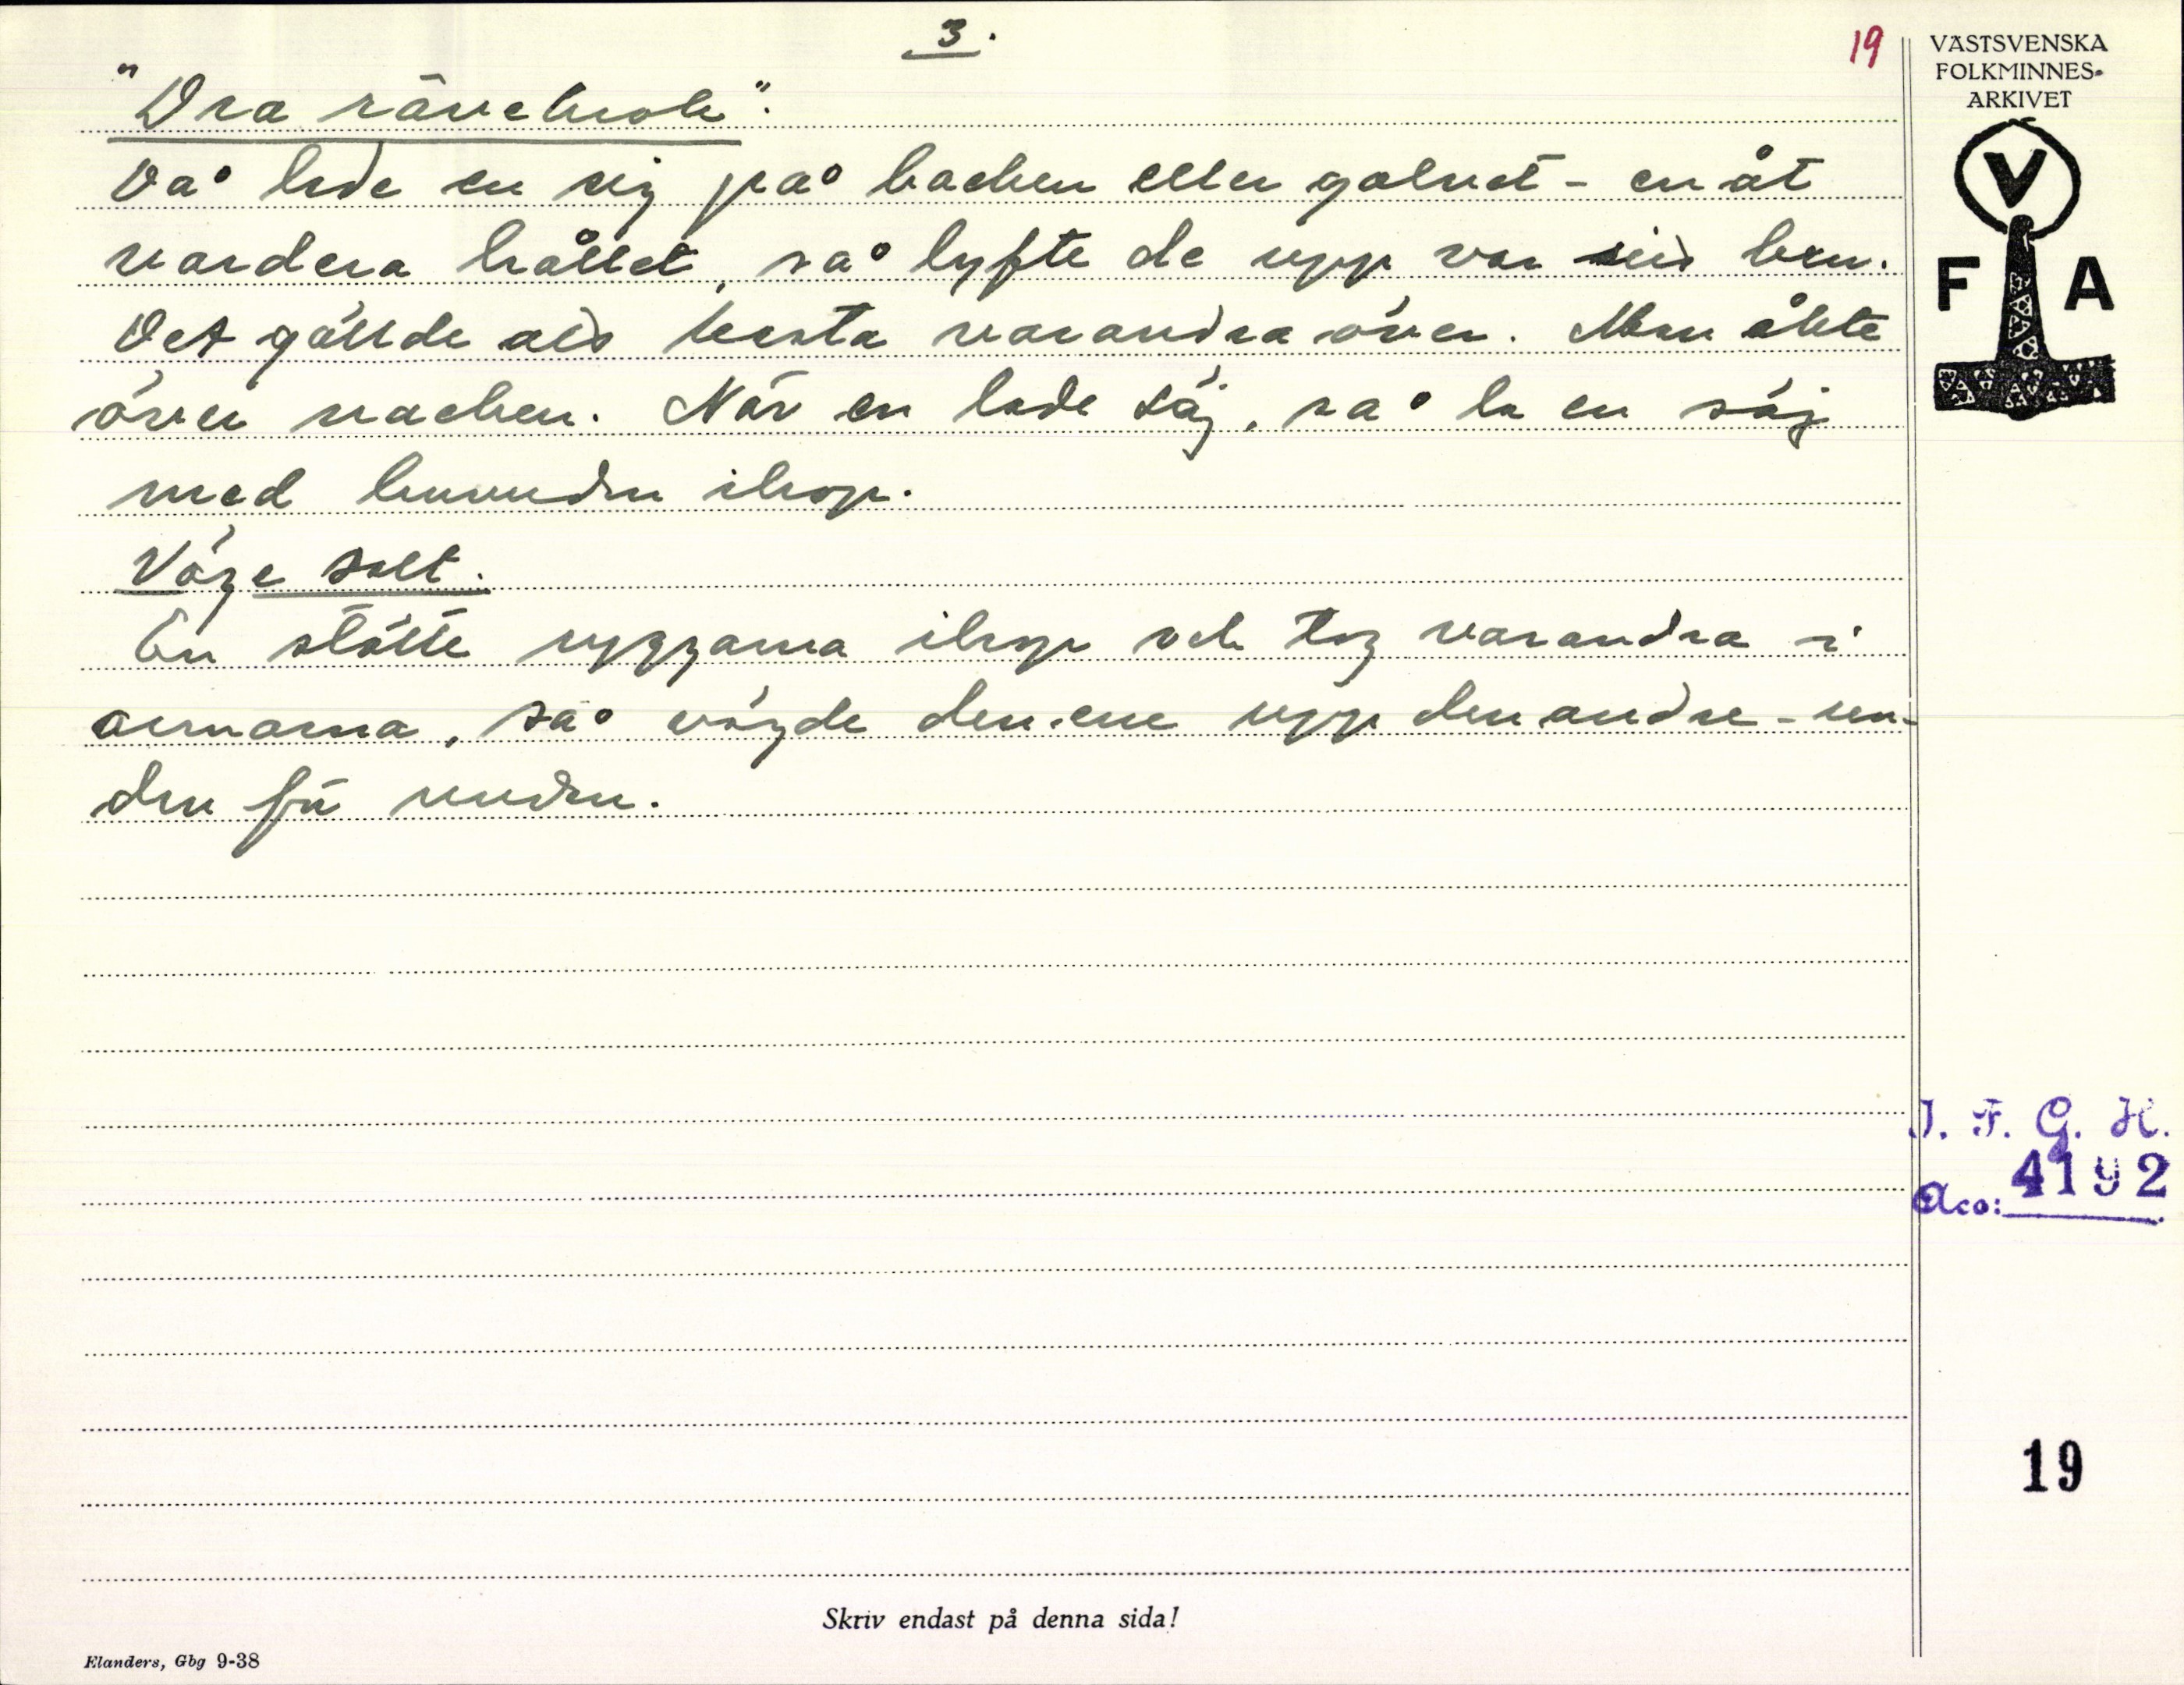 3.
19
VÄSTSVENSKA
FOLKMINNES-
ARKIVET
V
F A
"Dra rävekrok".
Då lade en sig på backen eller golvet - en åt
vardera hållet, så lyfte de upp var sitt ben.
Det gällde att kasta varandra över. Man åkte
över nacken. När en lade säj, så la en säj
med huvuden ihop.
Väge salt.
En stötte ryggarna ihop och tog varandra i
armarna, så vägde den ene upp den andre - un-
den för unden.
I. F. G. H.
Acc: 4192
19
Skriv endast på denna sida!
Elanders, Gbg 9-38